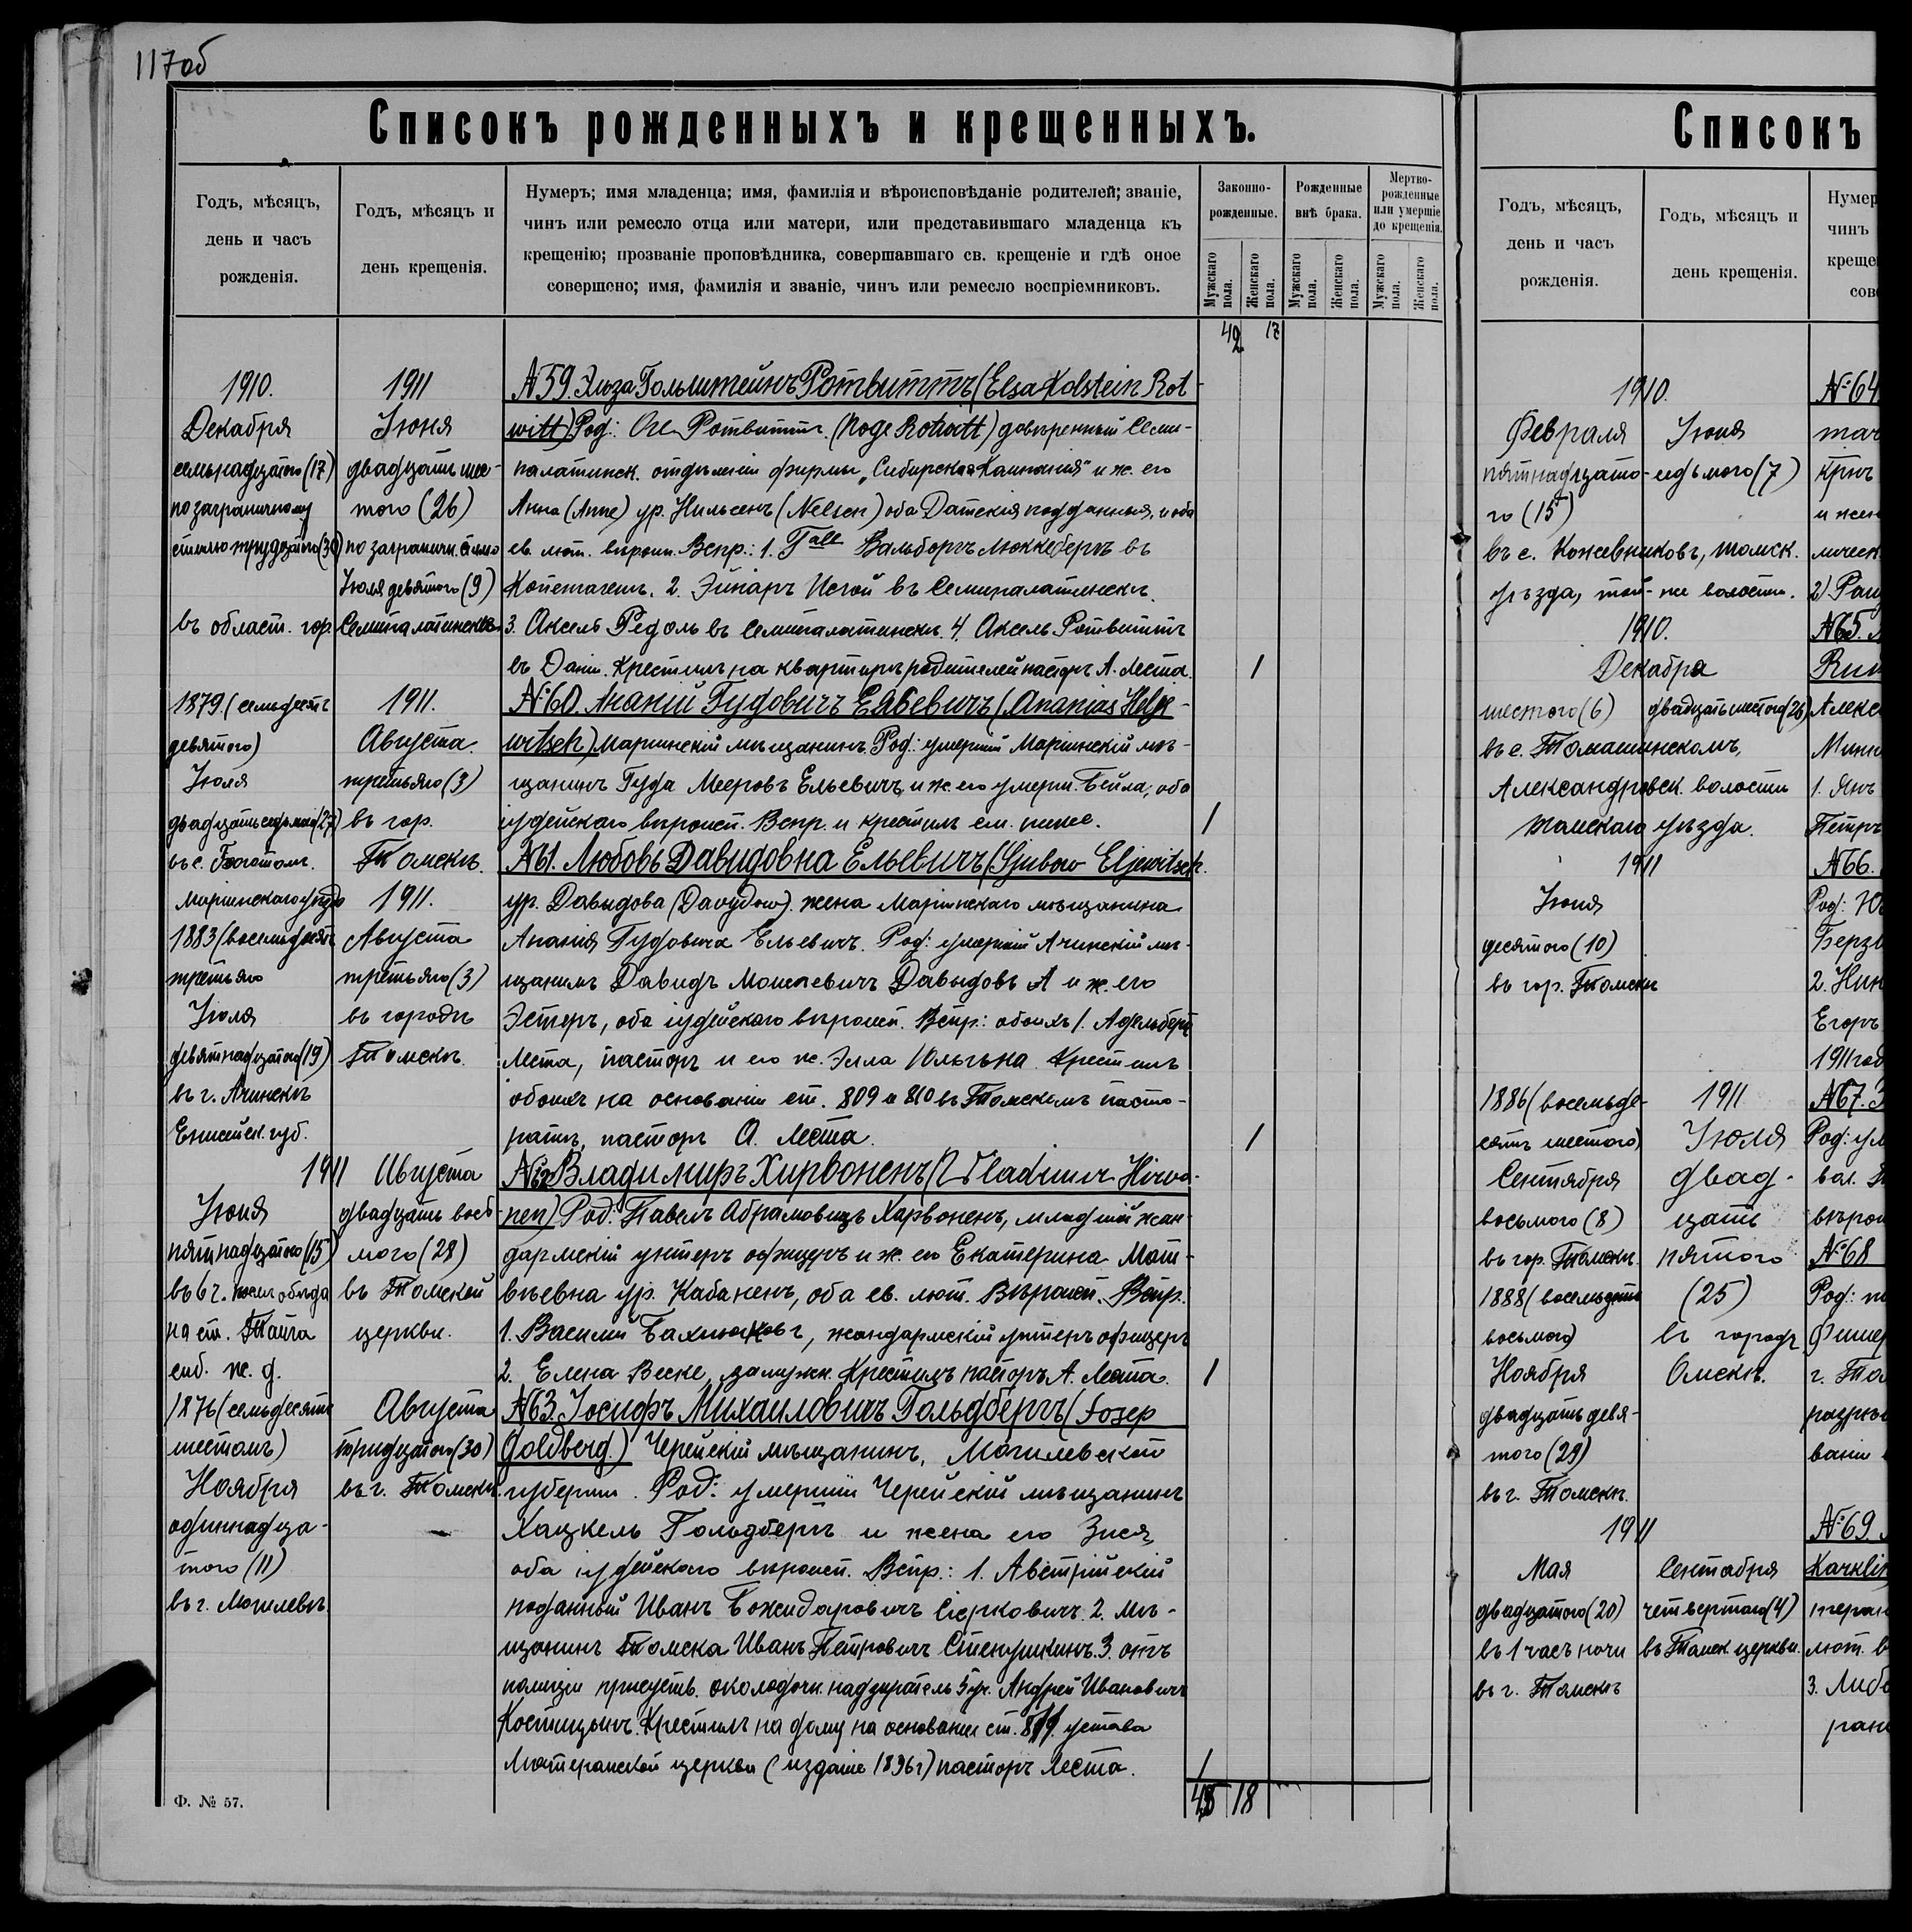 117об
Списокъ рожденныхъ и крещенныхъ.
Годъ, мѣсяцъ, день и часъ рожденія.
Годъ, мѣсяцъ и день крещенія.
Нумеръ; имя младенца; имя, фамилія и вѣроисповѣданіе родителей; званіе,
чинъ или ремесло отца или матери, или представившаго младенца къ
крещенію; прозваніе проповѣдника, совершавшаго св. крещеніе и гдѣ оное
совершено; имя, фамилія и званіе, чинъ или ремесло воспріемниковъ.
Законно-рожденные.
Рожденные внѣ брака.
Мертво-рожденные или умершіе до крещенія.
Мужскаго пола.
Женскаго пола.
Мужскаго пола.
Женскаго пола.
Мужскаго пола.
Женскаго пола.
42 17
1910.
Декабря
семьнадцатого (17)
по заграничному
стилю тридцатого (30)
въ област. гор.
1911
Іюня
двадцать шес-
того (26)
по загранич. стилю
Іюля девятого (9)
Семипалатинскѣ
№ 59. Эльза Гольштейнъ Ротвиттъ (Elsa Holstein Rot-
witt) Род: Оге Ротвиттъ довѣренный Семи-
палатинск. отдѣленія фирмы „Сибирская Компанія" и ж. его
Анна (Anne) ур. Нильсенъ (Nelsen) оба Датскія подданныя, и оба
ев. лют. вѣроисп. Вспр.: 1. Вальборгъ Люккебергъ въ
Копенгагенѣ. 2. Эйнаръ въ Семипалатинскѣ.
3. Аксель въ Семипалатинскѣ. 4. Аксель Ротвиттъ
въ Даніи. Крестилъ на квартирѣ родителей пасторъ А. Леста.
1
1879. (семьдесятъ
девятого)
Іюля
двадцать седьмаго (27)
въ с. Боготолѣ
Маріинскаго уѣзда
1911.
Августа
третьяго (3)
въ гор.
Томскѣ.
№ 60. Ананій Гудовичъ Елбевичъ (Ananias Helje-
witsch) Маріинскій мѣщанинъ. Род: умершій Маріинскій мѣ-
щанинъ Гуда Мееровъ Ельевичъ и ж. его умерш. Бейла, оба
іудейскаго вѣроисп. Вспр. и крестилъ см. ниже.
1
1883 (восемьдесятъ
третьяго
Іюля
девятнадцатого (19)
въ г. Ачинскѣ
Енисейск. губ.
1911.
Августа
третьяго (3)
въ городѣ
Томскѣ.
№ 61. Любовь Давидовна Ельевичъ (Ljubow Eljewitsch.
ур. Давыдова (Davydow). жена Маріинскаго мѣщанина
Ананія Гудовича Ельевичъ. Род: умершій Ачинскій мѣ-
щанинъ Давидъ Давыдовъ и ж. его
Эстеръ, оба іудейскаго вѣроисп. Вспр.: обоихъ 1. Адельбертъ
Леста, пасторъ и его ж. Элла Юльевна. Крестилъ
обоихъ на основаніи ст. 809 и 810 въ Томскомъ пасто-
ратѣ, пасторъ А. Леста.
1
1911
Іюня
пятнадцатого (15)
въ 6 ч. послѣ обѣда
на ст. Тайга
сиб. ж. д.
Августа
двадцать вось-
мого (28)
въ Томской
церкви.
№ 62 Владимиръ Хирвоненъ (Wladimir Hirvo-
nen) Род: Павелъ Абрамовичъ Хирвоненъ, младшій жан-
дармскій унтеръ офицеръ и ж. его Екатерина Мат-
вѣевна ур. Кабаненъ, оба ев. лют. Вѣроисп. Вспр.
1. Василій, жандармскій унтеръ офицеръ
2. Елена Веске, замужн. Крестилъ пасторъ А. Леста.
1
1876 (семьдесятъ
шестомъ)
Ноября
одиннадца-
того (11)
въ г. Могилевѣ
Августа
тридцатого (30)
въ г. Томскѣ.
№ 63. Іосифъ Михаиловичъ Гольдбергъ (Josep
Goldberg.) Черейскій мѣщанинъ, Могилевской
губерніи. Род: умершій Черейскій мѣщанинъ
Хацкель Гольдбергъ и жена его Зися,
оба іудейского вѣроисп. Вспр.: 1. Австрійскій
поданный Иванъ Божидаровичъ Сіерковичъ. 2. Мѣ-
щанинъ Томска Иванъ Петровичъ Стенушкинъ. 3. отъ
полиціи присутств. околодочн. надзиратель 5 уч. Андрей Ивановичъ
Костицынъ. Крестилъ на дому на основаніи ст. устава
Лютеранской церкви (изданіе 1896 г) пасторъ Леста.
1
45 18
Ф. № 57.
Списокъ
Годъ, мѣсяцъ, день и часъ рожденія.
Годъ, мѣсяцъ и день крещенія.
Нумер
чинъ
креще
сов
1910.
Февраля
пятнадцато-
го (15)
въ с. Кожевниковѣ, томск.
уѣзда, той-же волости.
Іюня
седьмого (7)
№ 64
1910.
Декабря
шестого (6)
въ с. Томашинскомъ,
Александровск. волости
томскаго уѣзда.
двадцать шестого (26)
№ 65.
Алекс
1. Янъ
Петръ
1911
Іюня
десятого (10)
въ гор. Томскѣ
№ 66.
Род: Ю
Берз
2. Нин
Егоръ
1911 год
1886 (восемьде-
сятъ шестого)
Сентября
восьмого (8)
въ гор. Томскѣ.
1888 (восемьдесятъ
восьмого)
Ноября
двадцать девя-
того (29)
въ г. Томскѣ.
1911
Іюля
двад-
цать
пятого
(25)
въ городѣ
Омскѣ.
№ 67. Э
Род: ум
вол.
вѣрои
№ 68
Род:
г. То
1911
Мая
двадцатого (20)
въ 1 часъ ночи
въ г. Томскѣ
Сентября
четвертаго (4)
въ Томск. церкви.
№ 69
Karklin
лют. в
3. Либ